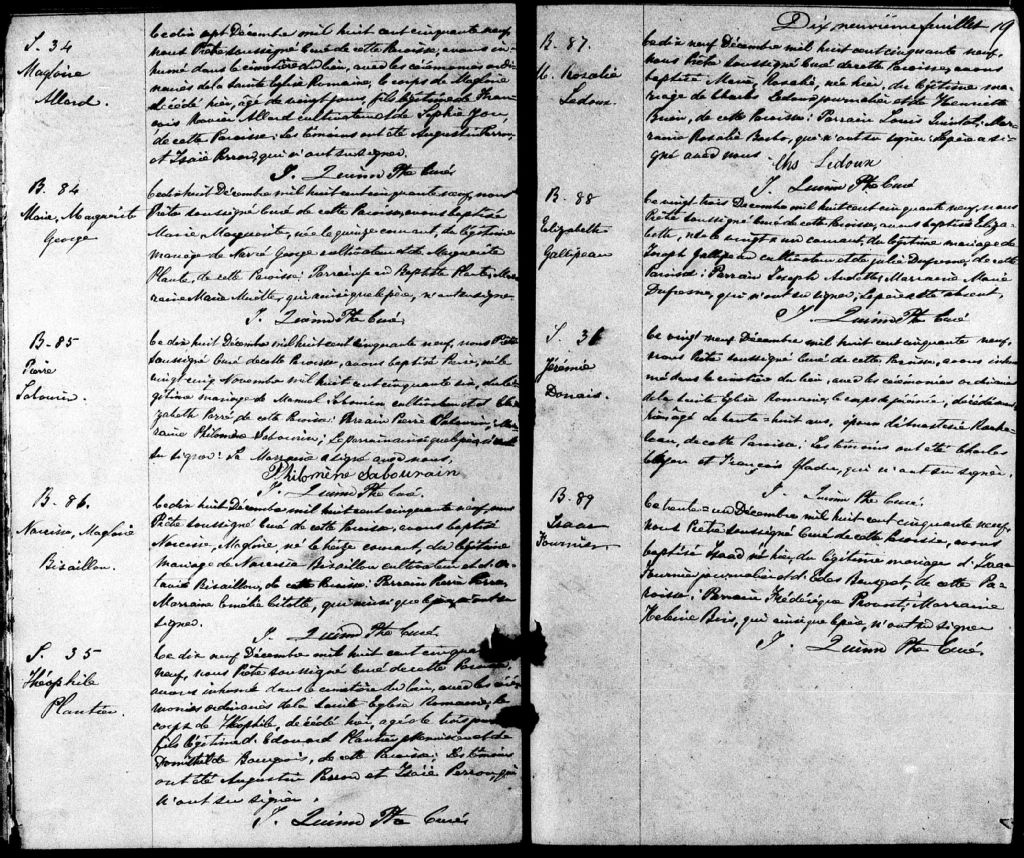 S. 34
Magloire
Allard.
Le dix sept Décembre mil huit cent cinquante neuf,
nous Prêtre soussigné Curé de cette Paroisse, avons in-
humé dans le cimetière du lieu, avec les cérémonies ordi-
naires de la Sainte Eglise Romaine, le corps de Magloire
décédé hier, agé de vingt jours, fils légitime de Fran-
çois Xavier Allard cultivateur et de Sophie
de cette Paroisse: Les témoins ont été Augustin Perron,
et Isaïe Perron, qui n'ont su signer.
J. Quinn Ptre Curé
B. 84
Marie, Marguerite
George
Le dix huit Décembre mil huit cent cinquante neuf, nous
Prêtre soussigné Curé de cette Paroisse, avons baptisé
Marie, Marguerite, née le quinze courant, du légitime
mariage de George cultivateur et de Marguerite
Plante, de cette Paroisse: Parrain Jean Baptiste Plante; Mar-
raine Marie qui ainsi que le père, n'ont su signer
J. Quinn Ptre Curé,
B. 85
Pierre
Sabourin.
Le dix huit Décembre mil huit cent cinquante neuf, nous Prêtre
soussigné Curé de cette Paroisse, avons baptisé Pierre, né le
vingt cinq Novembre mil huit cent cinquante six, du lé-
gitime mariage de Manuel Sabourin cultivateur et d'Eli-
zabeth Perré de cette Paroisse: Parrain Pierre Sabourin; Mar-
raine Philomène Sabourin; Le parrain ainsi que le père, n'ont
su signer: La Marraine a signé avec nous,
Philomène Sabourain
J. Quinn Ptre Curé.
B. 86.
Narcisse, Magloire
Bisaillon.
Le dix huit Décembre mil huit cent cinquante neuf, nous
Prêtre soussigné Curé de cette Paroisse, avons baptisé
Narcisse, Magloire, né le treize courant, du légitime
mariage de Narcisse Bisaillon cultivateur et d'
Bisaillon, de cette Paroisse: Parrain Pierre
Marraine Emélie Citolle, qui ainsi que le père, n'ont su
signer.
J. Quinn Ptre Curé
S. 35
Théophile
Plantier.
Le dix neuf Décembre mil huit cent cinquante
neuf, nous Prêtre soussigné Curé de cette Paroisse,
avons inhumé dans le cimetière du lieu, avec les céré-
monies ordinaires de la Sainte Eglise Romaine, le
corps de Théophile, décédé hier, agé de trois jours
fils légitime d'Edouard Plantier Menuisier et de
Domithilde Bourgeois, de cette Paroisse: Les témoins
ont été Augustin Perron et Isaïe Perron, qui
n'ont su signer.
J. Quinn Ptre Curé
Dix neuvième feuillet 19
B. 87.
M. Rosalie
Ledoux.
Le dix neuf Décembre mil huit cent cinquante neuf,
nous Prêtre soussigné Curé de cette Paroisse, avons
baptisé Marie, Rosalie, née hier, du légitime ma-
riage de Charles Ledoux journalier et de Henriette
de cette Paroisse: Parrain Louis Mar-
raine Rosalie qui n'ont su signer: Le père a si-
gné avec nous
Chs Ledoux
J. Quinn Ptre Curé
B. 88
Elizabeth
Gallipeau
Le vingt trois Décembre mil huit cent cinquante neuf, nous
Prêtre soussigné Curé de cette Paroisse, avons baptisé Eliza-
beth, née le vingt & un courant, du légitime mariage de
Joseph Gallipeau cultivateur et de Julie Dufresne, de cette
Paroisse: Parrain Joseph Audette; Marraine Marie
Dufresne, qui n'ont su signer; Le père était absent.
J. Quinn Ptre Curé,
S. 36
Jérémie
Donais.
Le vingt neuf Décembre mil huit cent cinquante neuf,
nous Prêtre soussigné Curé de cette Paroisse, avons inhu-
mé dans le cimetière du lieu, avec les cérémonies ordinaires
de la Sainte Eglise Romaine, le corps de Jérémie, décédé
agé de trente-huit ans, époux d'
de cette Paroisse: Les témoins ont été Charles
et François qui n'ont su signer.
J. Quinn Ptre Curé.
B. 89
Isaac
Fournier.
Le trente-un Décembre mil huit cent cinquante neuf,
nous Prêtre soussigné Curé de cette Paroisse, avons
baptisé Isaac né hier, du légitime mariage d'Isaac
Fournier journalier et d' de cette Pa-
roisse: Parrain Frédérique Proust; Marraine
Heleine Bois, qui ainsi que le père, n'ont su signer
J. Quinn Ptre Curé,